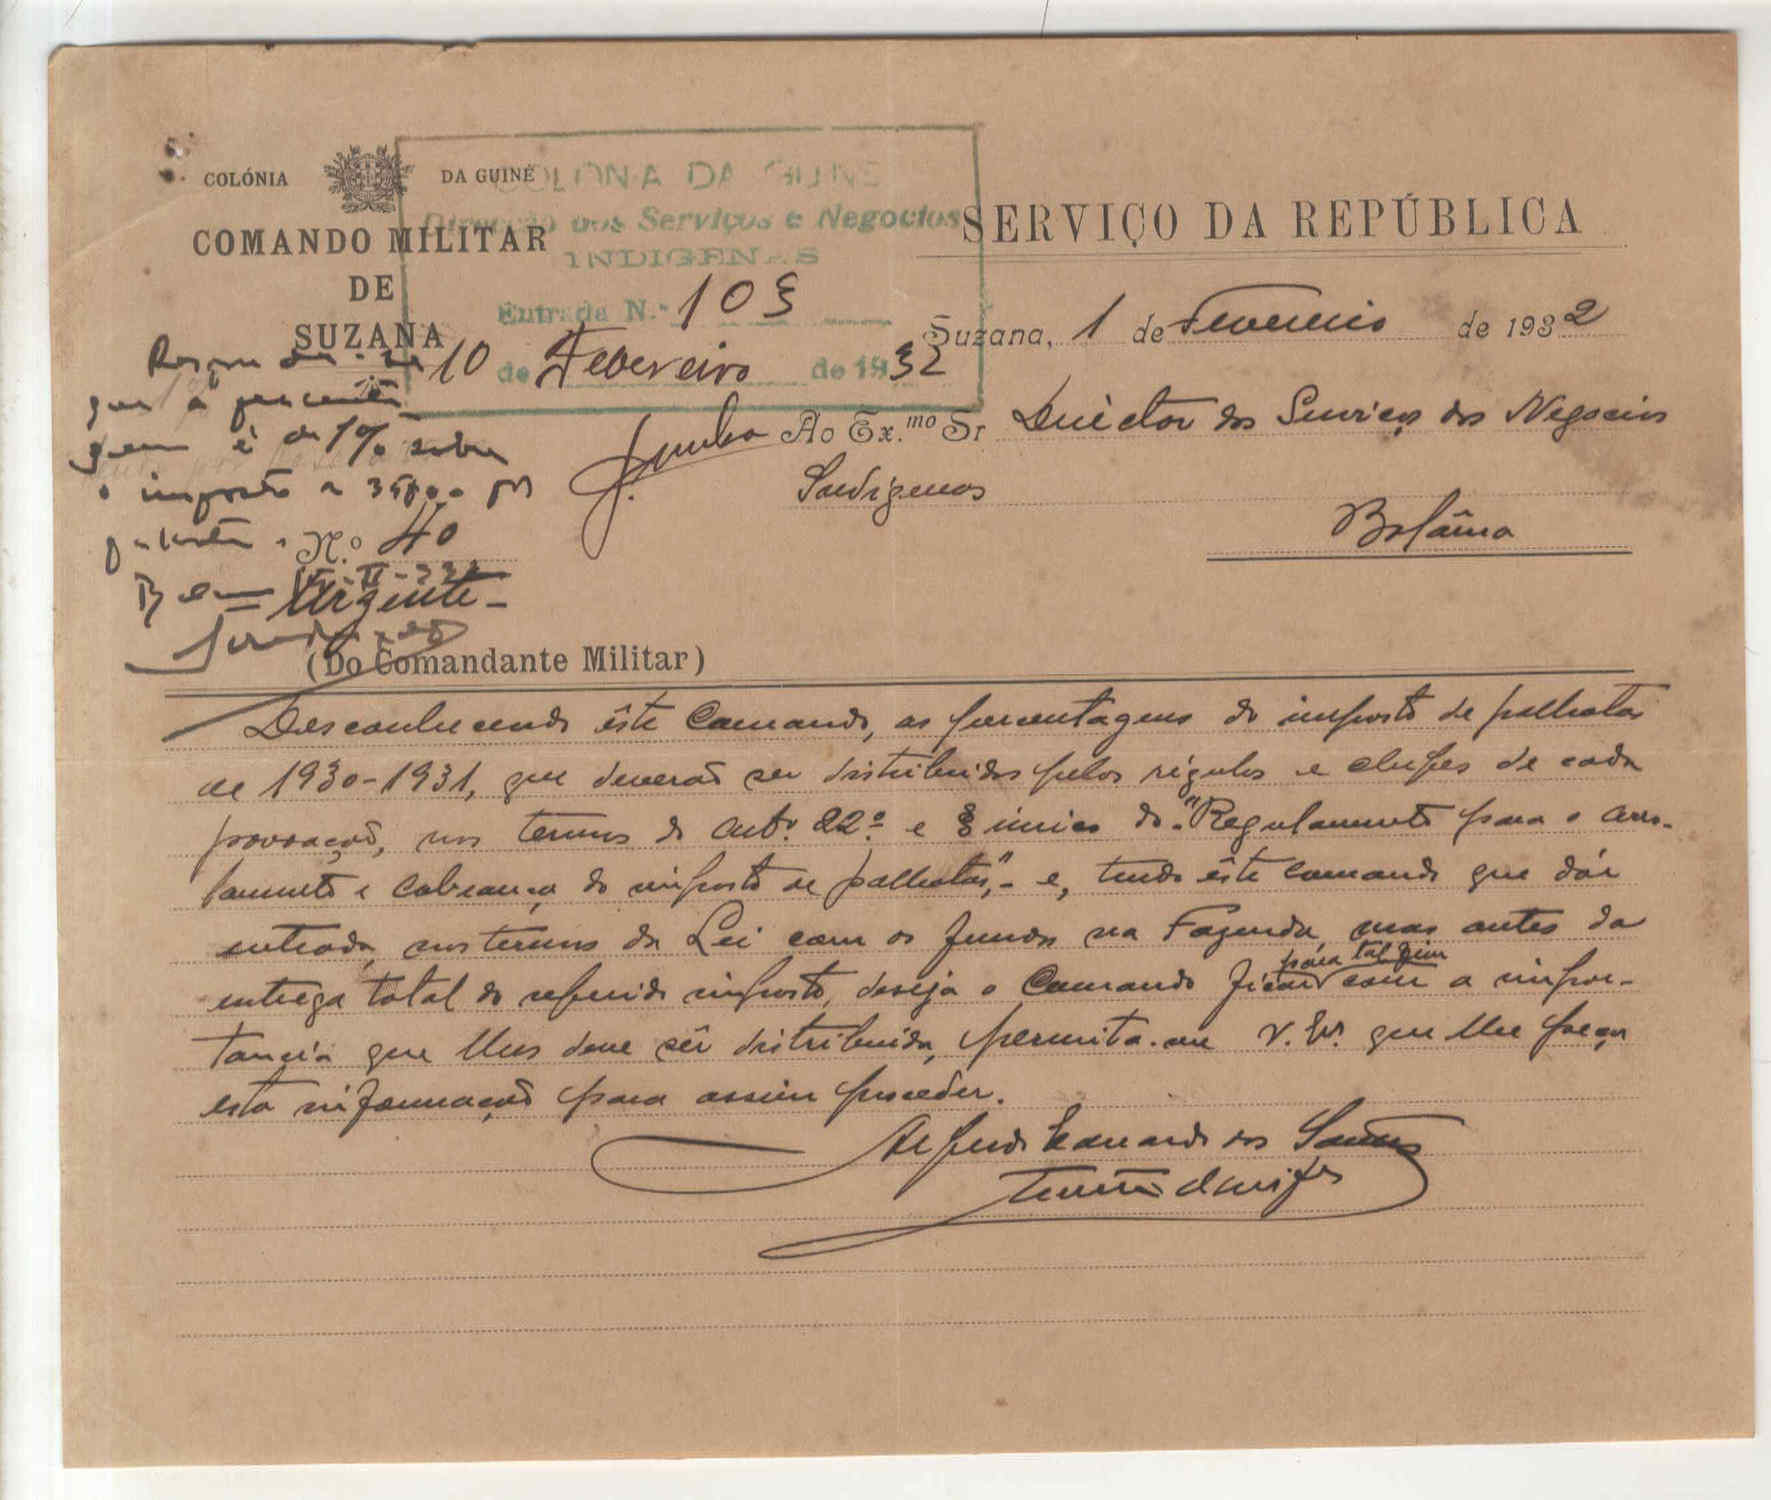 COLÓNIA DA GUINÉ
COMANDO MILITAR
DE
SUZANA
COLONIA DA GUINE
Direcção dos Serviços e Negocios
INDIGENAS
Entrada N.º 103
10 de Fevereiro de 1932
SERVIÇO DA REPÚBLICA
Suzana, 1 de Fevereiro de 1932
Junho Ao Ex.mo Sr Director dos Serviços dos Negocios
Indigenas
Bolâma
que a percentagem
é de 1% sobre
o imposto
N.º 40
Urgente-
(Do Comandante Militar)
Desconhecendo êste Comando, as percentagens do imposto de palhotas
de 1930-1931, que deverão ser distribuidas pelos régulos e chefes de cada
povoação, nos termos do artº. 22º. e § unico do "Regulamento para o arro-
lamento e cobrança do imposto de palhotas",- e, tendo êste comando que dár
entrada, nos termos da Lei com os fundos na Fazenda mas antes da
entrega total do referido imposto, deseja o Comando ficar para tal fim com a impor-
tancia que lhes deve sêr distribuida, permita-me V. Exª. que lhe peça
esta informação para assim proceder.
Alfredo Eduardo dos Santos